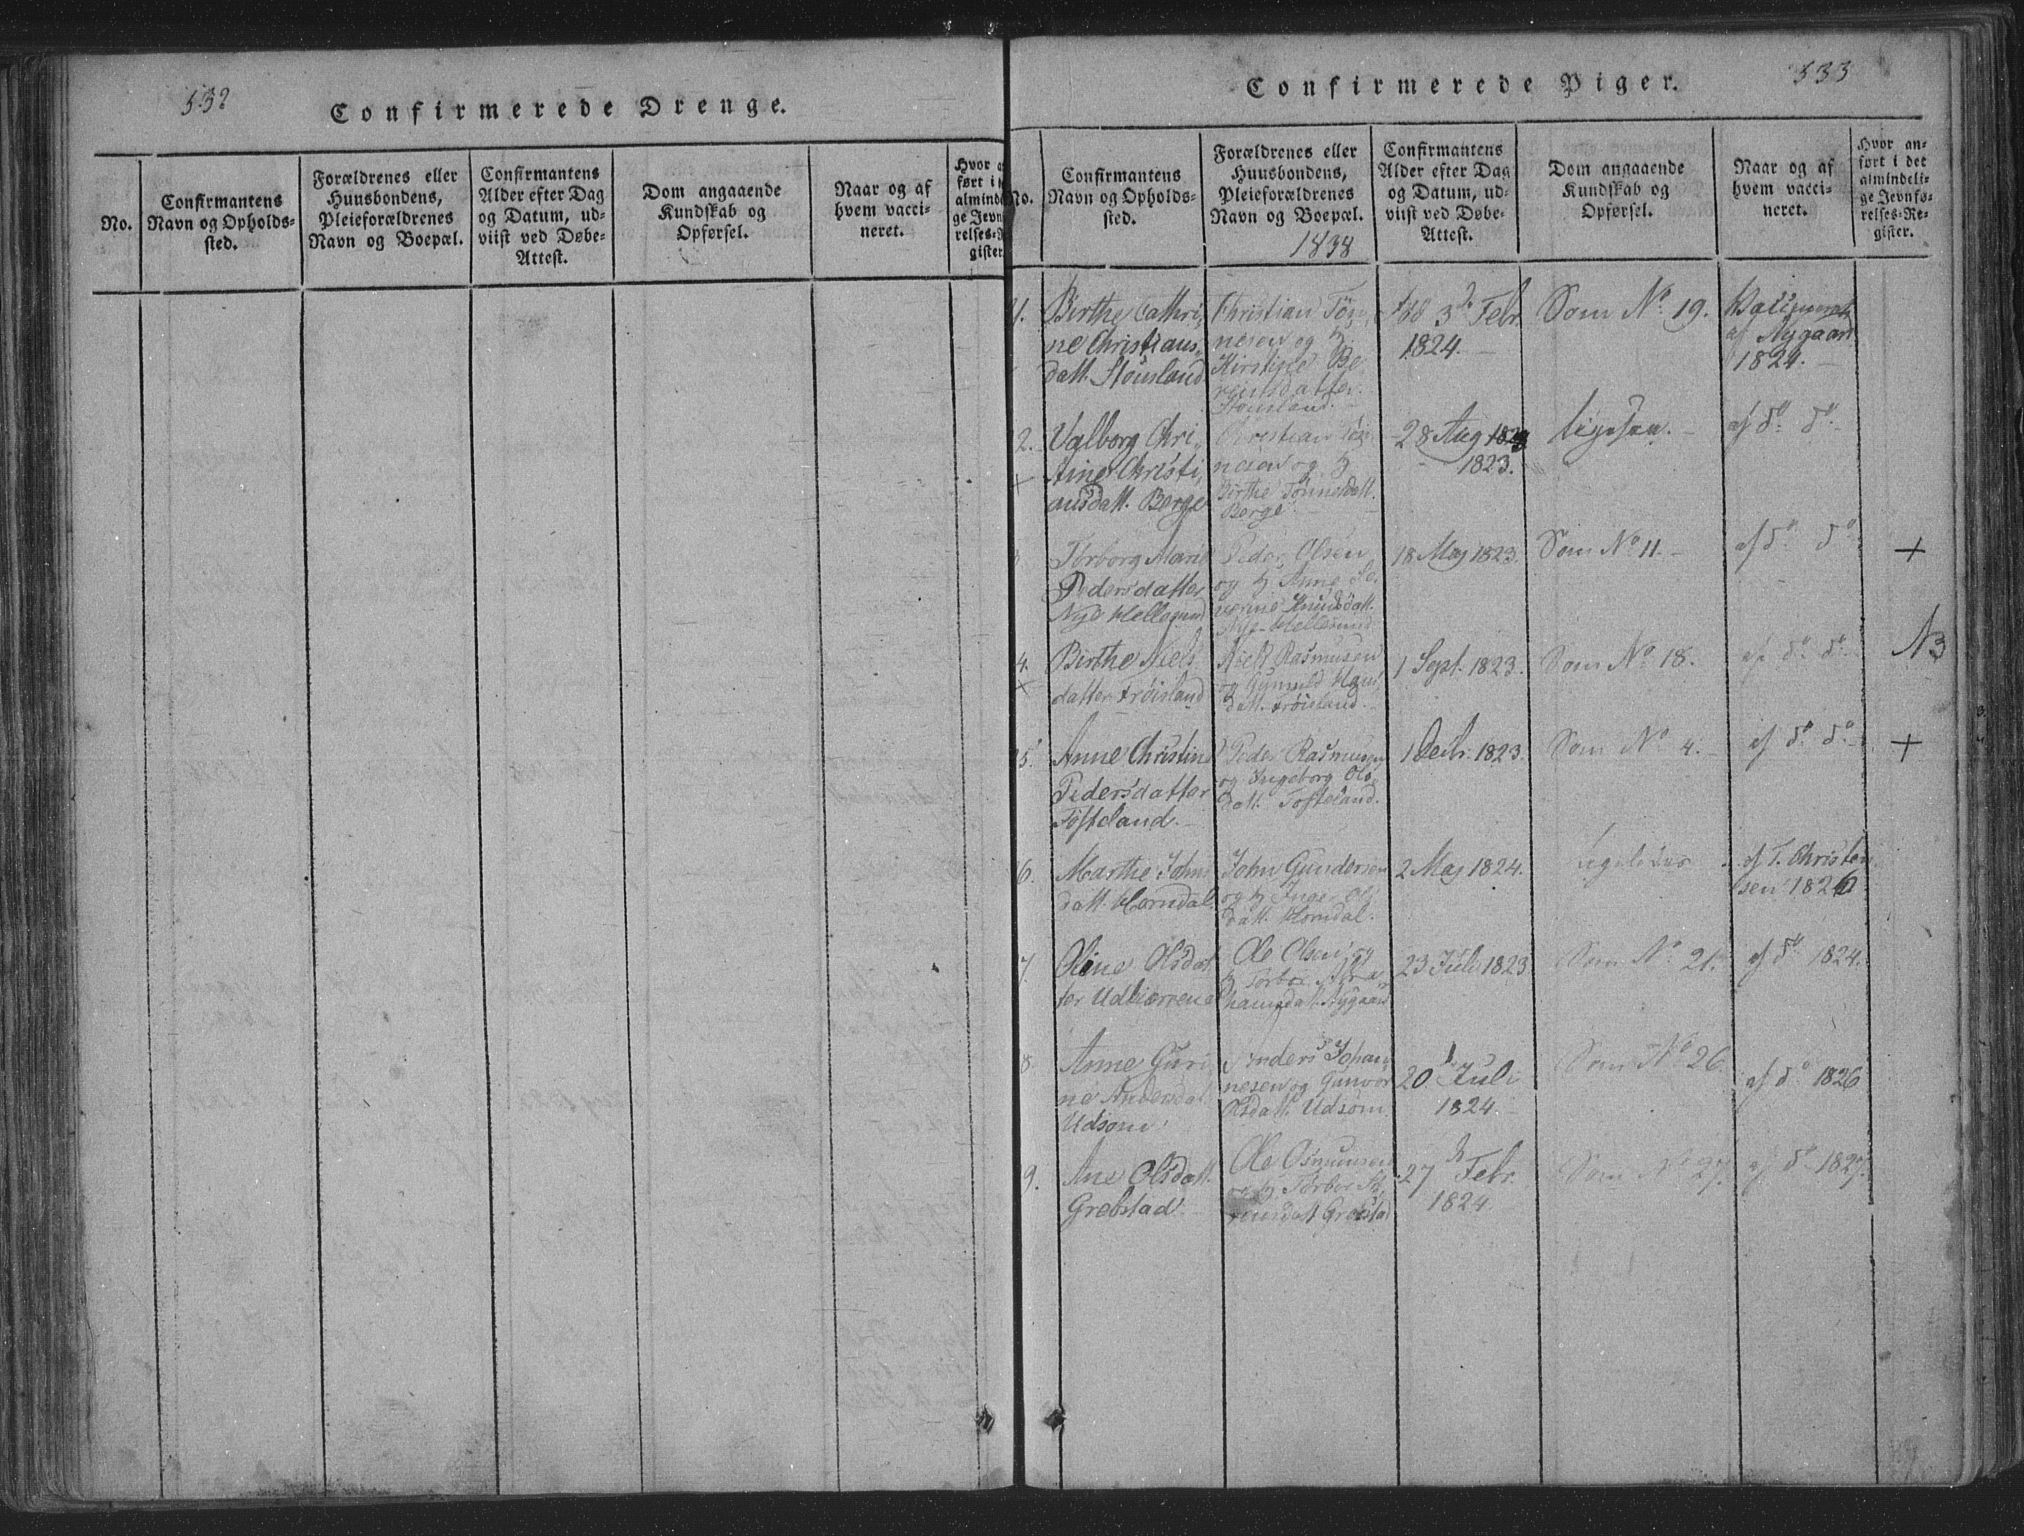 532
Confirmerede Drenge.
No.
Confirmantens
Navn og Opholds-
sted.
Forældrenes eller
Huusbondens,
Pleieforældrenes
Navn og Boepæl.
Confirmantens
Alder efter Dag
og Datum, ud-
viist ved Døbe-
Attest.
Dom angaaende
Kundskab og
Opførsel.
Naar og af
hvem vacci-
neret.
Hvor
ført i
almind
ge Jevn
relses-R
gister.
Confirmerede Piger.
533
No.
Confirmantens
Navn og Opholds-
sted.
Forældrenes eller
Huusbondens,
Pleieforældrenes
Navn og Boepæl.
1838
Confirmantens
Alder efter Dag
og Datum, ud-
viist ved Døbe-
Attest.
Dom angaaende
Kundskab og
Opførsel.
Naar og af
hvem vacci-
neret.
Hvor an-
ført i det
almindeli-
ge Jevnfø-
relses-Re-
gister.
1.
Birthe Cathri,
ne Christians,
datt. Stousland
Christian Tøn,
nesen og H
Kirstine Be
rentsdatter
Stousland.
3 Febr.
1824.
Som No 19.
af Nygaard
1824.
2.
Valborg Chri,
Christi,
ansdatt. Berge
Christian Tøn
nesen og H
Birthe Tønnesdatt.
Berge
28 Aug
1823.
af do do
Torborg Marie
Pedersdatter
Nye Hellesund
Peder Olsen
og H Anne Se,
verine Knudsdatt.
Nye-Hellesund
18 Maj 1823.
Som No 11.
af do do
+
4.
Birthe Niels
datter Frøisland
Niels Rasmusen
og Gunvild Hans
datt. Frøisland.
1 Sept. 1823.
Som No 18.
af do do
N3
5.
Anne Christine
Pedersdatter
Tofteland.
Peder Rasmusen
og Ingeborg Ols
datt. Tofteland.
1 Decbr. 1823.
Som No 4.
af do do
+
6.
Marthe Johns
datt. Homdal
John Gundersen
og H Inger Ols
datt. Homdal.
2 Maj 1824.
af T. Christen
sen 1826.
7.
Oline Olsdat
ter
Ole Olsen og
H Torbor Abra
hamsdat. Nygaard
23 Juli 1823
Som No 21.
af do 1824.
8.
Anne Guri,
ne Andersdat
Udsom
Anders Johan,
nesen og Gunvor
Olsdatt. Udsom
20 Juli
1824.
Som No 26
af do 1826
9.
Ane Olsdatt.
Grebstad
Ole Osmunsen
og H Torbor
Grebstad
27 Febr.
1824.
Som No 27.
af do 1827.